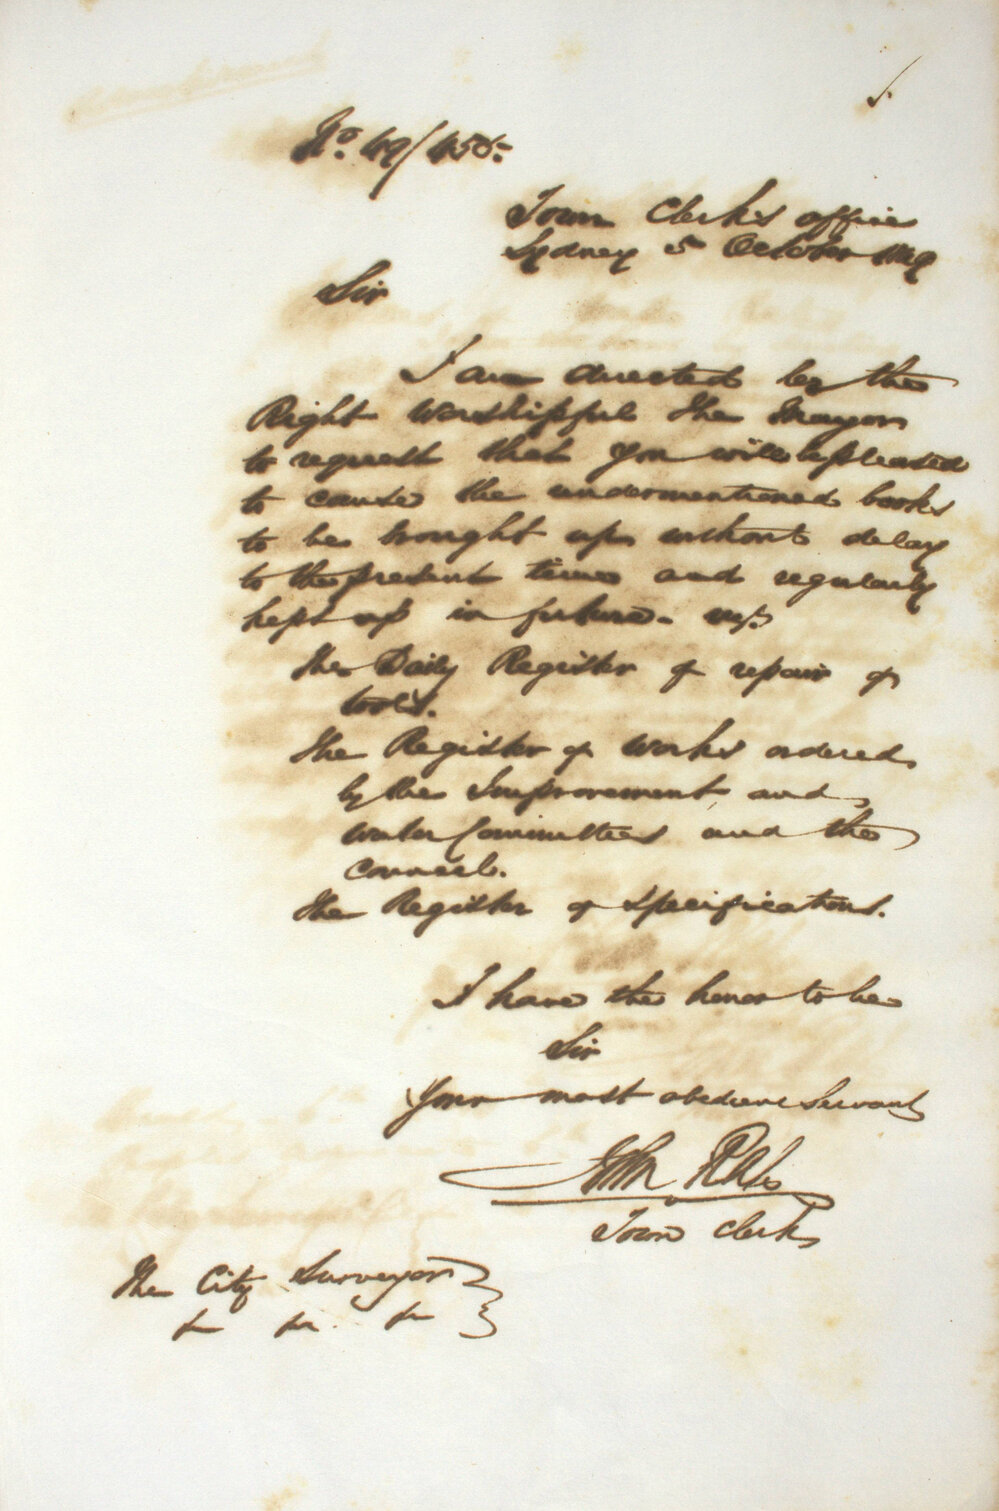 No. 49/450.
Town Clerk's office
Sydney 5 October 1849
Sir
I am directed by the
Right Worshipful the Mayor
to request that you will be pleased
to cause the undermentioned books
to be brought up without delay
to the present time and regularly
kept up in future.
The Daily Register of repair of
tools.
The Register of works ordered
by the Improvement and
water Committees and the
Council.
The Register of specifications.
I have the honor to be
Sir
Your most obedient Servant
John
Town Clerk
The City Surveyor